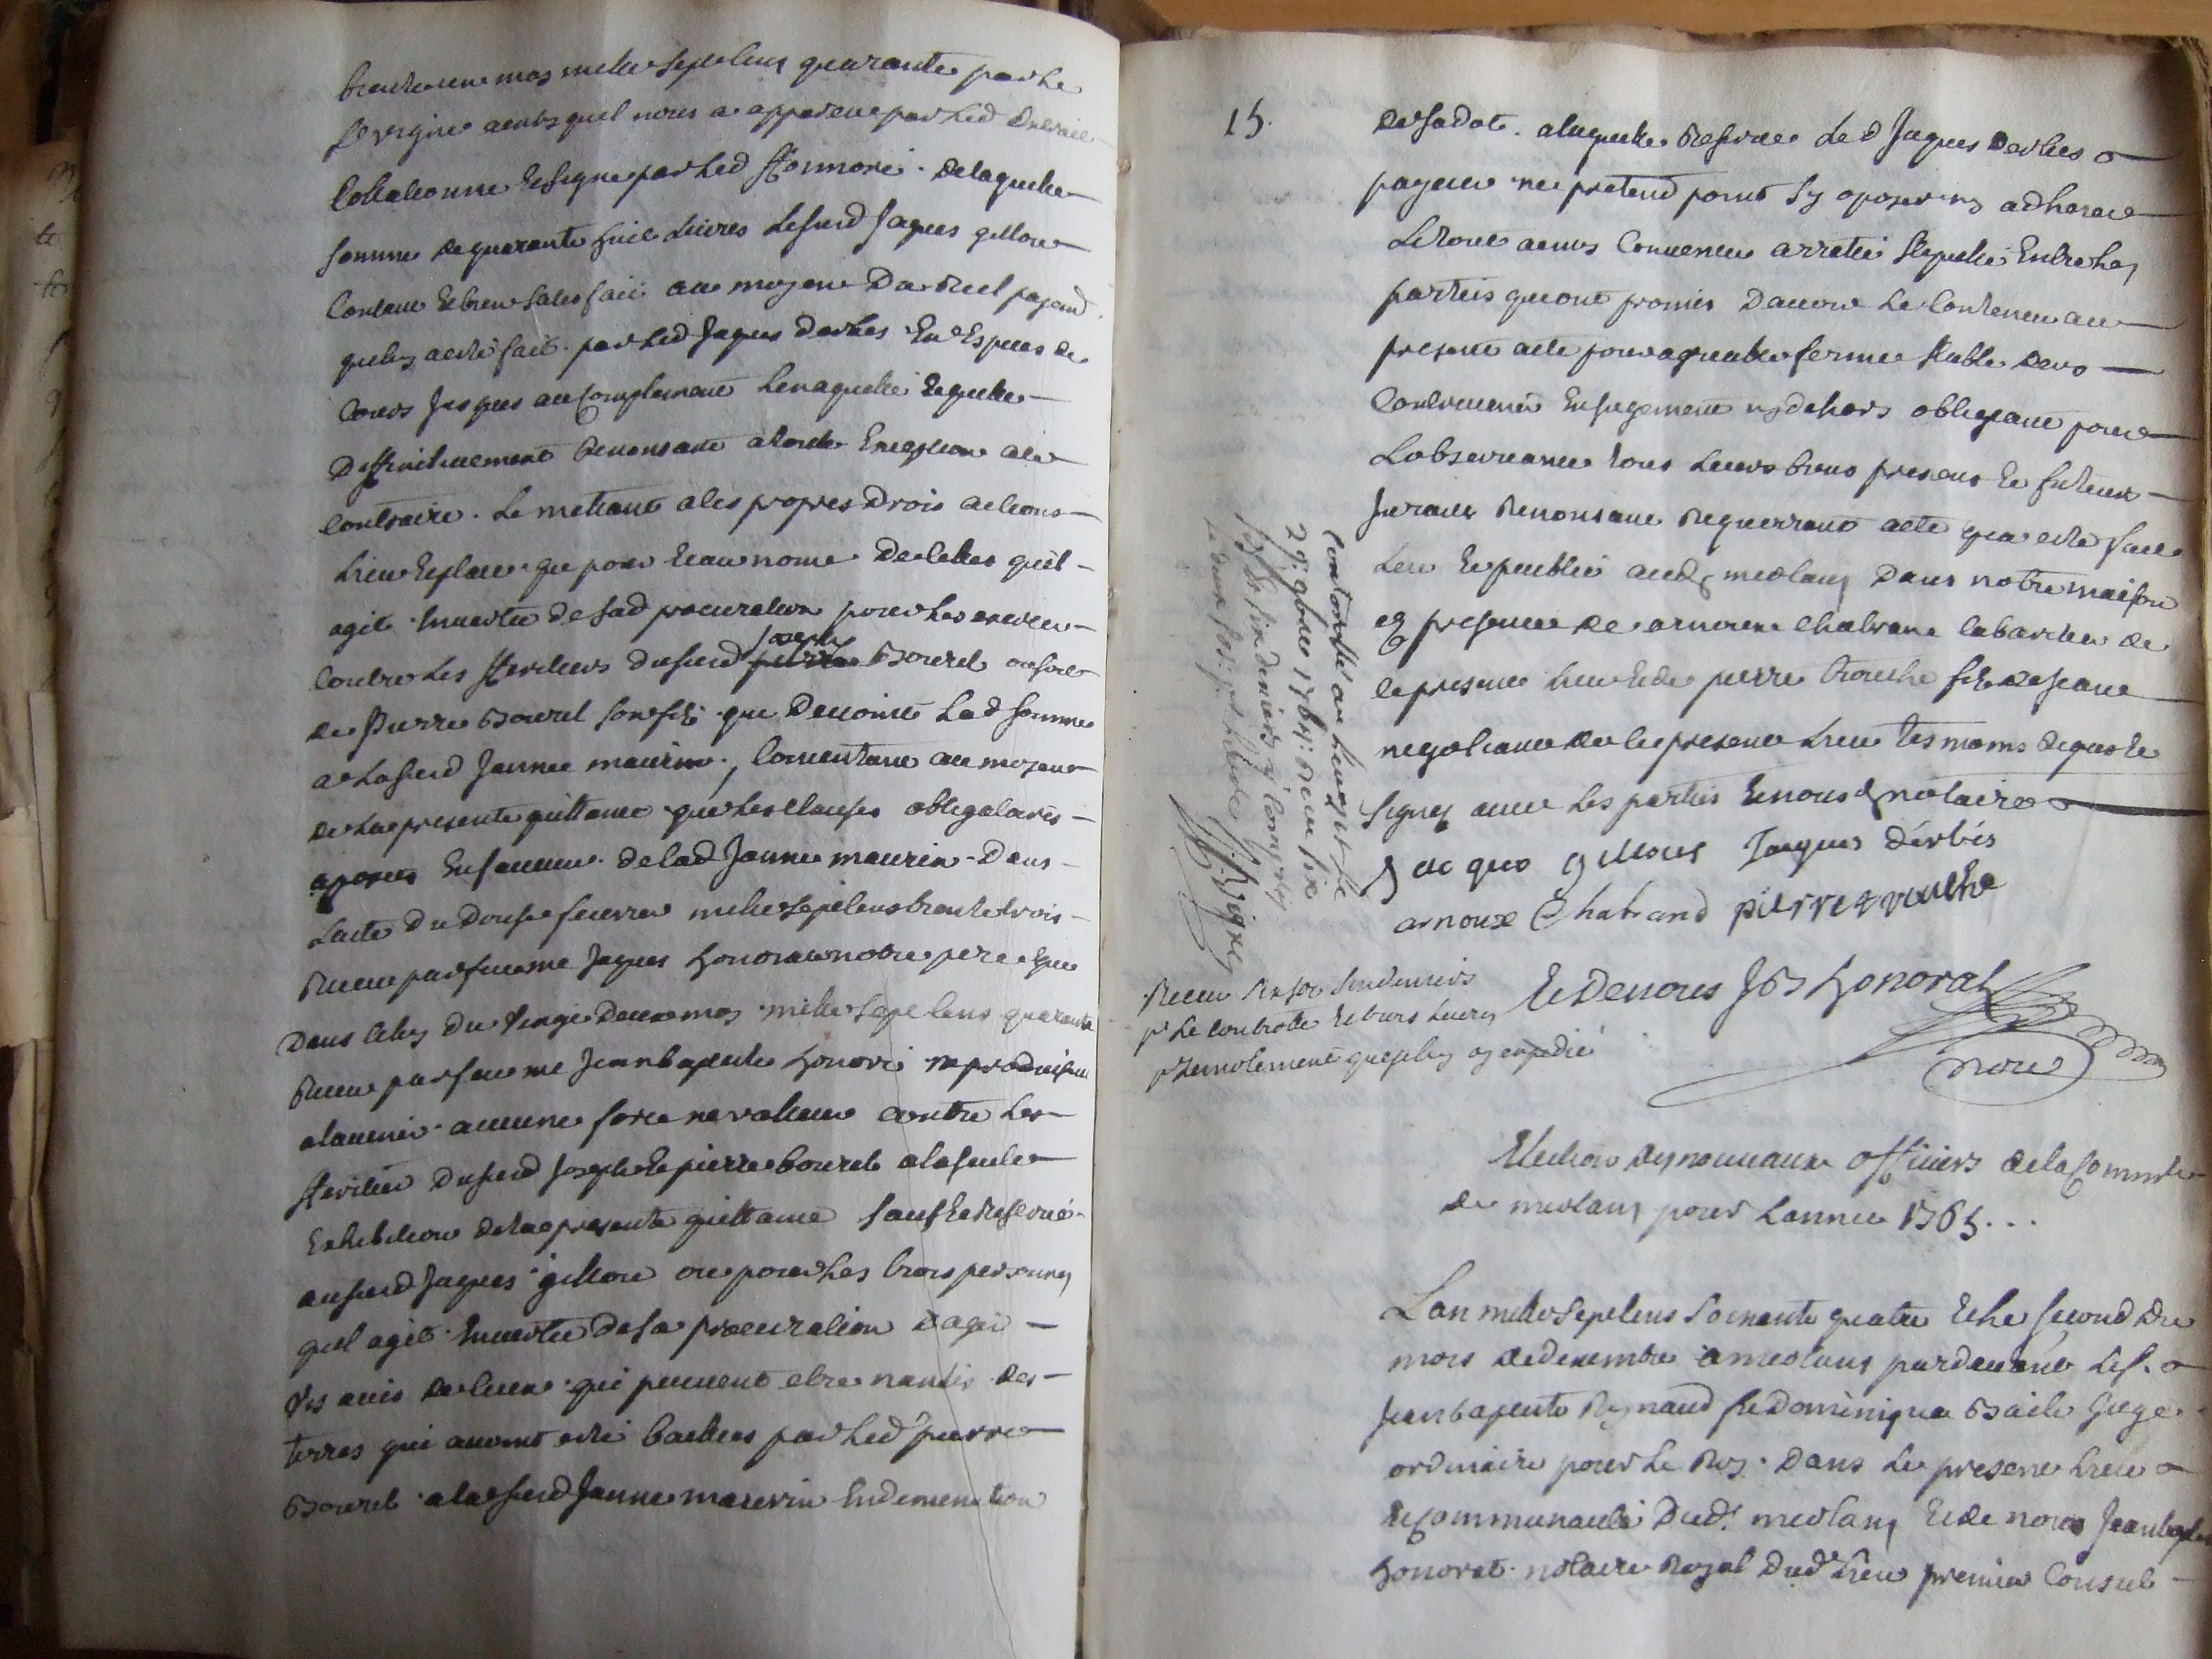 trente un may mille sept cens quarante par le
Sr vigne ainsy quil nous a apparu par led
Collationné et signé par led honnoré. de laquelle
somme de quarante huit livres le susd Jaques gillous
content et bien satisfait au moyen du reel payemt
quil luy a esté fait par led Jaques derbes en especes de
cours jusques au complement len a quitté et quitte
deffinitivement renonsant a toute exception a la
contraire. le mettant a les propres drois actions
lieu et place que pour et au nom de celles quil
agit en vertu de sad procuration pour les exercer
contre les heritiers du susd joseph bourel ou soit
de pierre bourel son fils que devoint lad somme
a la susd Janne maurin, consentant au moyen
de la presente quittance que les clauses obligatoires
aposées en faveur de lad Janne maurin dans
lacte du douse fevrier mille sept cens trente trois
receu par feu me Jaques honorat notre pere et que
dans celuy du vingt deux may mille sept cens quarante
receu par feu me Jean baptiste honoré ne produisent
a lavenir aucune force ne valleur contre les
heritiers du susd Joseph et pierre bourel a la seule
exhibition de la presente quittance sauf et reservé
au susd Jaques gillous ou pour les trois personnes
quil agit en vertu de sa procuration dagir
vis avis de ceux qui peuvent etre nantis des
terres qui avoint esté baillées par led pierre
Bourel a la susd Janne maurin en diminution
15.
de sa dot. a laquelle reserve led Jaques derbes
payeur ne pretend point sy oposer ny adherer
le tout ainsy convenu arretté stipullé entre les
parties qui ont promis davoir le contenu au
present acte pour agreable ferme stable sans
contrevenir en jugement ny dehors obligeant pour
lobservance tous leurs biens presens et futeurs
Jurant renonsant requerrant acte qua esté fait
leu et publié aud meolans dans notre maison
en presence de arnoux chabrand labarilier de
ce present lieu et de pierre trouche fils de jean
negotiant de ce present lieu tesmoins requis et
signés avec les parties et nous d notaire
Jacques gillous Jaques dérbés
arnoux Chabrand pierre trouche
Et De nous J B honorat
nore
Controllé au Lauzet le
29: 9bre 1764: receu six
le deux sols pr livre
Vigne
Receu six sols six deniers
pr le controlle et deux livres
pr lemolement que jen ay expedié
Election des nouveaux officiers de la Commté
de meolans pour lannée 1765...
Lan mille sept cens soixante quatre et le second du
mois de decembre a meolans pardevant le sr
Jean baptiste Reynaud fils Dominique Baile Juge
ordinaire pour le Roy dans le present lieu
et communauté dud. meolans et de nous Jean bapte
honorat notaire Royal dud lieu premier consul